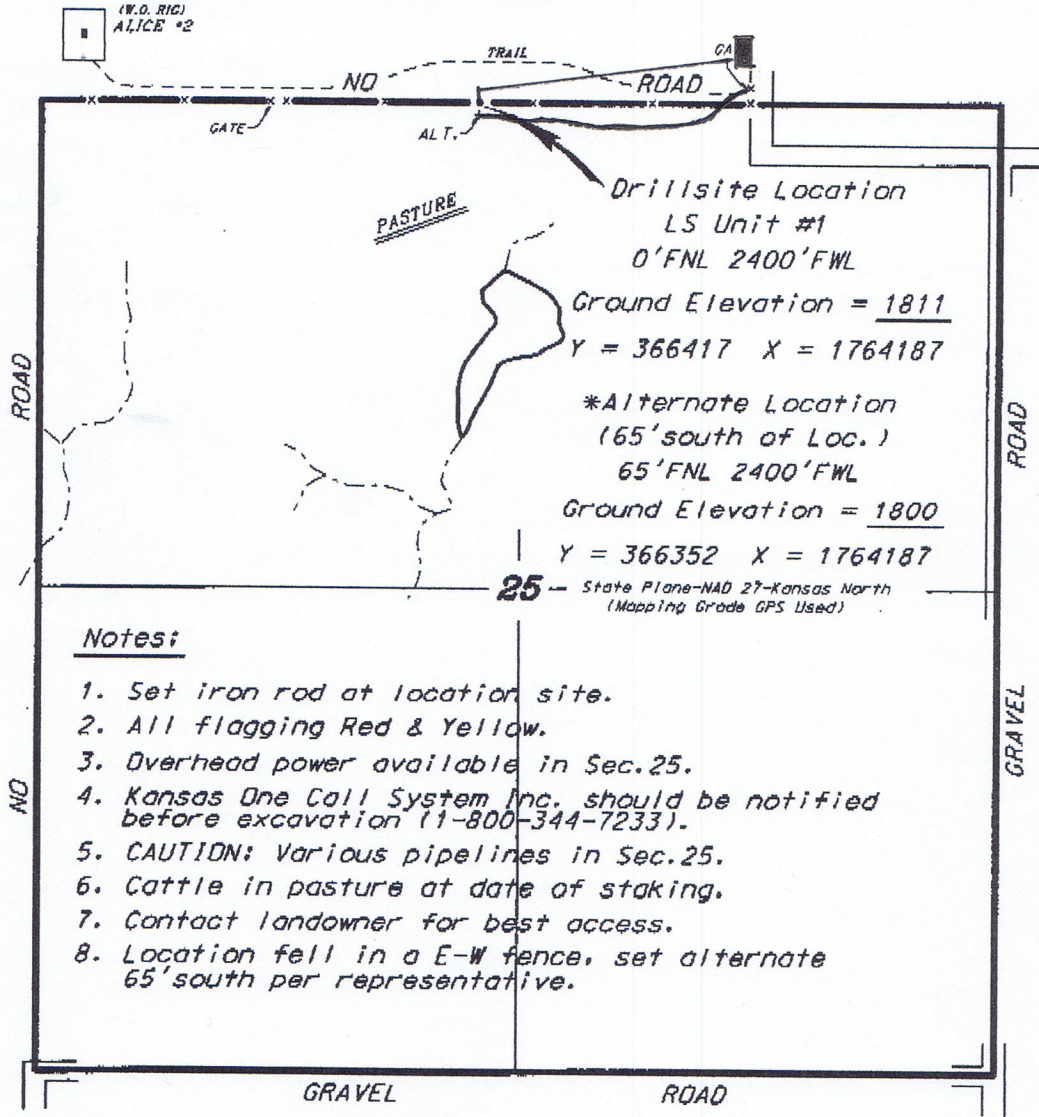 (W.O. RIG)
ALICE #2
TRAIL
NO ROAD
GATE
ALT.
PASTURE
Drillsite Location
LS Unit #1
0'FNL 2400'FWL
Ground Elevation = 1811
Y = 366417 X = 1764187
*Alternate Location
(65'south of Loc.)
65'FNL 2400'FWL
Ground Elevation = 1800
Y = 366352 X = 1764187
25
State Plane-NAD 27-Kansas North
(Mapping Grade GPS Used)
ROAD
NO
ROAD
GRAVEL
Notes:
1. Set iron rod at location site.
2. All flagging Red & Yellow.
3. Overhead power available in Sec.25.
4. Kansas One Call System Inc. should be notified
before excavation (1-800-344-7233).
5. CAUTION: Various pipelines in Sec.25.
6. Cattle in pasture at date of staking.
7. Contact landowner for best access.
8. Location fell in a E-W fence, set alternate
65'south per representative.
GRAVEL ROAD